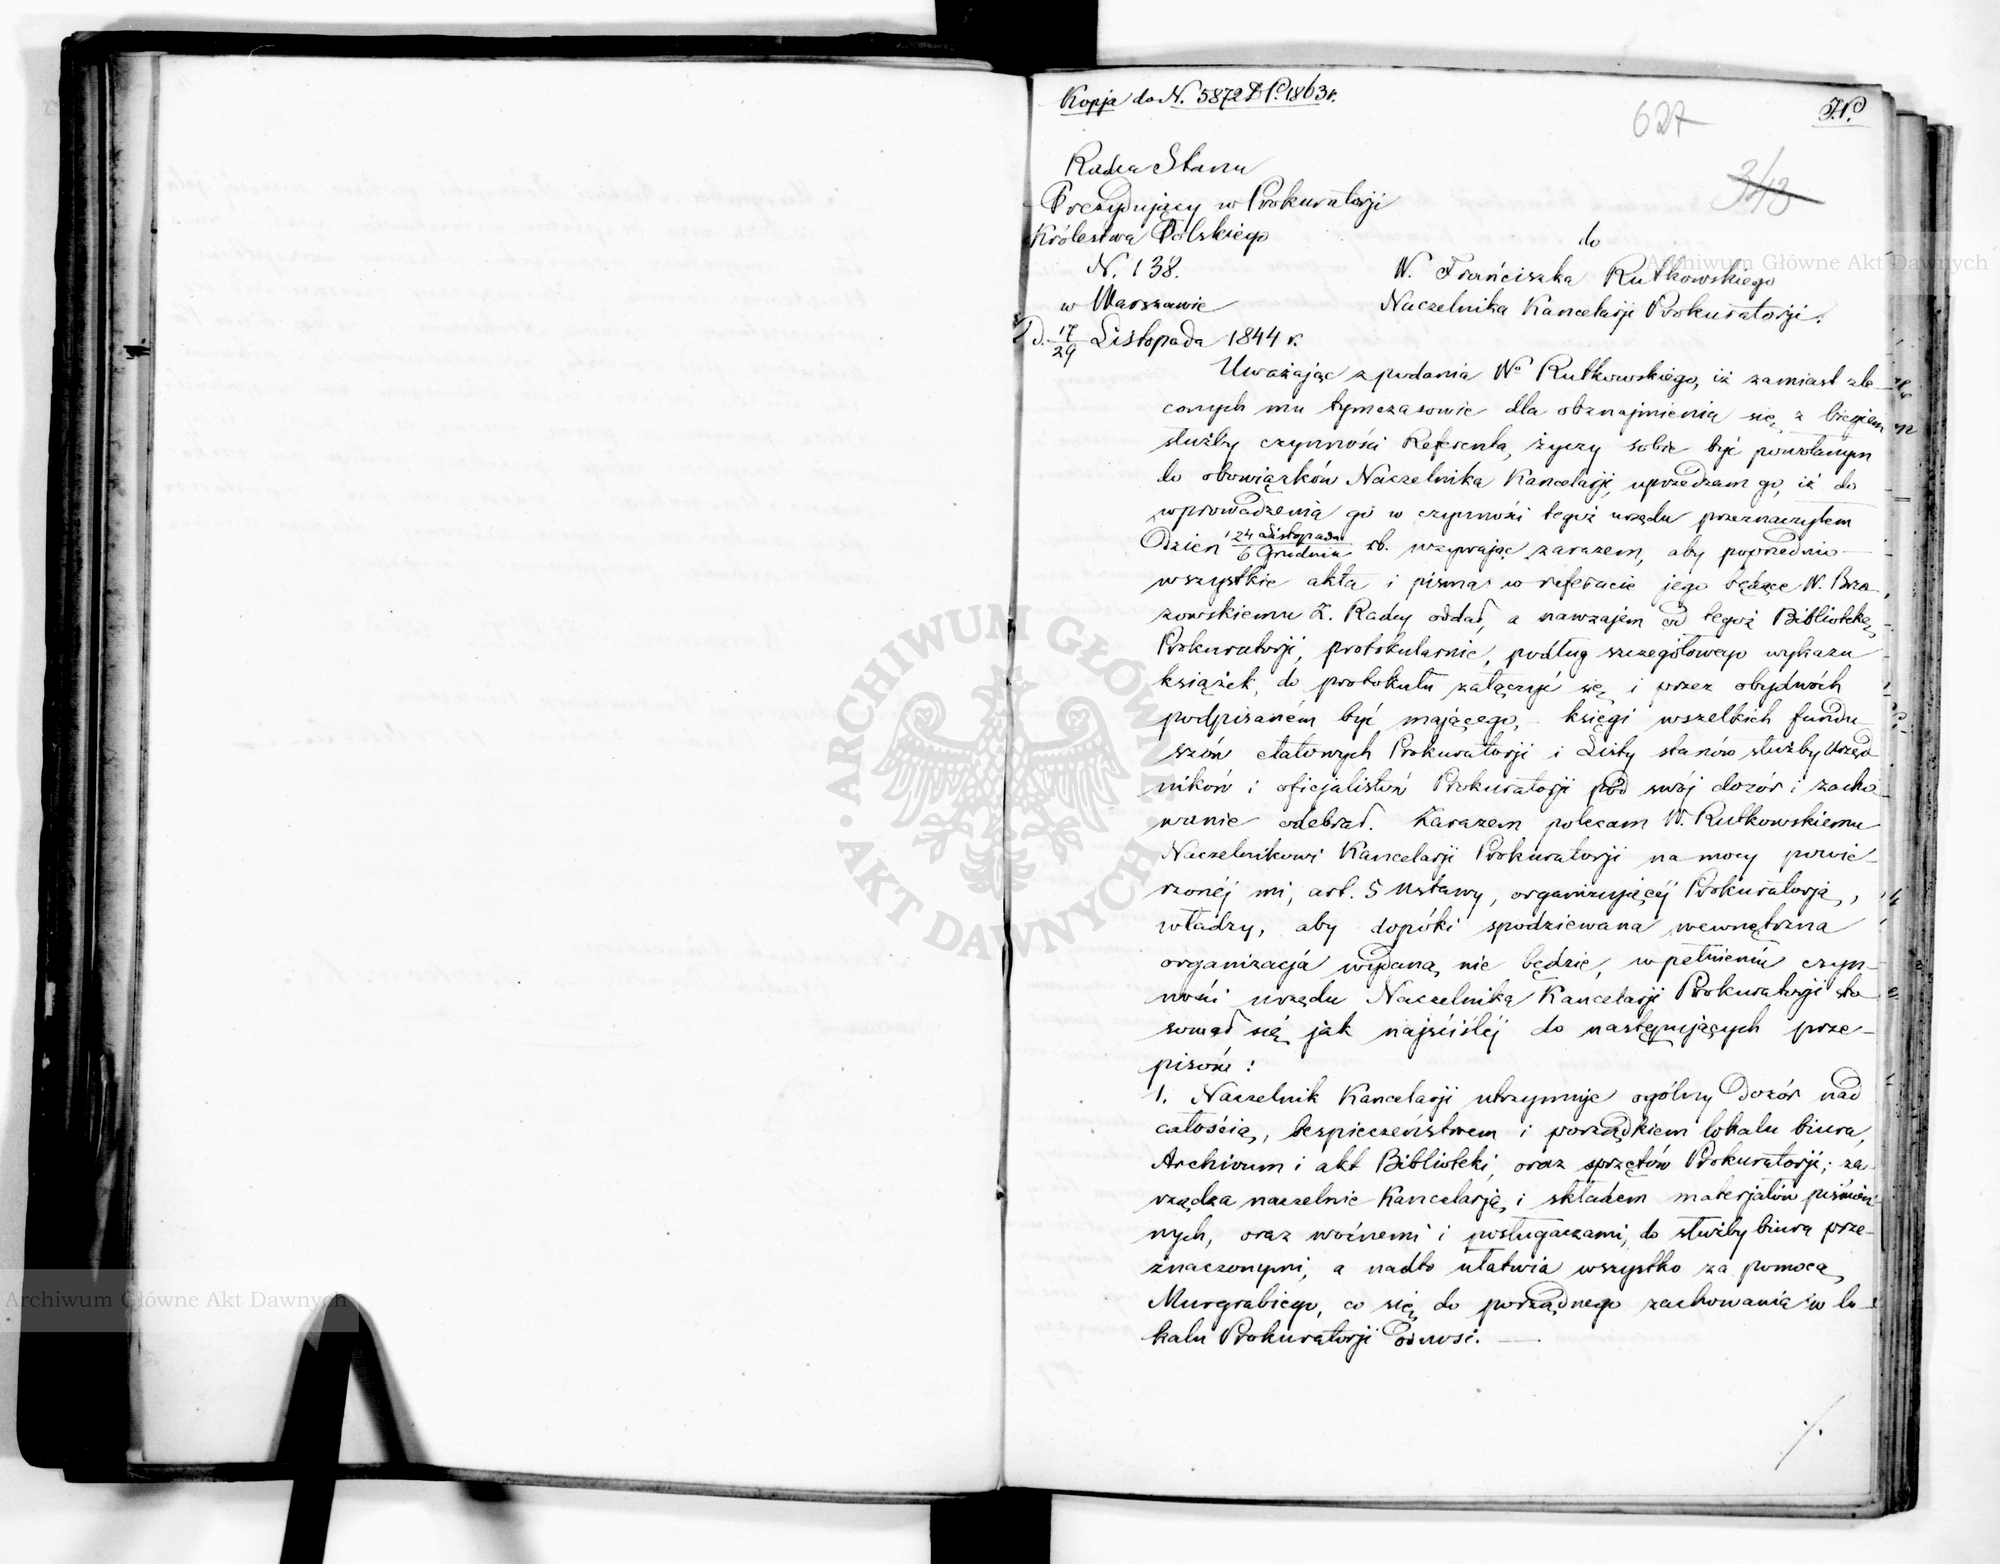 Kopja do N. 5872 D P. 1863 r.
J.P.
627
348
Radca Stanu
Prezydujący w Prokuratorji
Królestwa Polskiego
N. 138.
w Warszawie
D. 17/29 Listopada 1844 r.
do
W. Frańciszka Rutkowskiego
Naczelnika Kancelarji Prokuratorji.
Uważając z podania Wo Rutkowskiego, iż zamiast zle-
conych mu tymczasowie dla obznajmienia się z biegiem
służby czynności Referenta, życzy sobie być powołanym
do obowiązków Naczelnika Kancelarji, uprzedzam go, iż do
wprowadzenia go w czynności tegoż urzędu przeznaczyłem
Dzień 24 Listopada/6 Grudnia rb. wzywając zarazem, aby poprzednio
wszystkie akta i pisma w referacie jego będące W. Brzo-
zowskiemu Z. Radcy oddał, a nawzajem od tegoż Bibliotekę
Prokuratorji, protokularnie, podług szczegółowego wykazu
książek, do protokułu załączyć się i przez obydwóch
podpisaném być mającego, księgi wszelkich fundu-
szów etatowych Prokuratorji i Listy stanów służby Urzęd-
ników i oficjalistów Prokuratorji pod swój dozór i zacho-
wanie odebrał. Zarazem polecam W. Rutkowskiemu
Naczelnikowi Kancelarji Prokuratorji na mocy powie-
rzonéj mi, art. 5 Ustawy, organizującéj Prokuratorją,
władzy, aby dopóki spodziewana wewnętrzna
organizacja wydaną nie będzie, w pełnieniu czyn-
ności urzędu Naczelnika Kancelarji Prokuratorji sto-
sował się jak najściśléj do następujących prze-
pisów:
1. Naczelnik Kancelarji utrzymuje ogólny Dozór nad
całością, bezpieczeństwem i porządkiem lokalu biura,
Archiwum i akt Biblioteki, oraz sprzętów Prokuratorji; za-
rządza naczelnie Kancelarją i składem materjałów piśmien-
nych, oraz woźnemi i posługaczami, do służby biura prze-
znaczonymi, a nadto ułatwia wszystko za pomocą
Murgrabiego, co się do porządnego zachowania w lo-
kalu Prokuratorji odnosi.
./.
ARCHIWUM GŁÓWNE AKT DAWNYCH
Archiwum Główne Akt Dawnych
Archiwum Główne Akt Dawnych